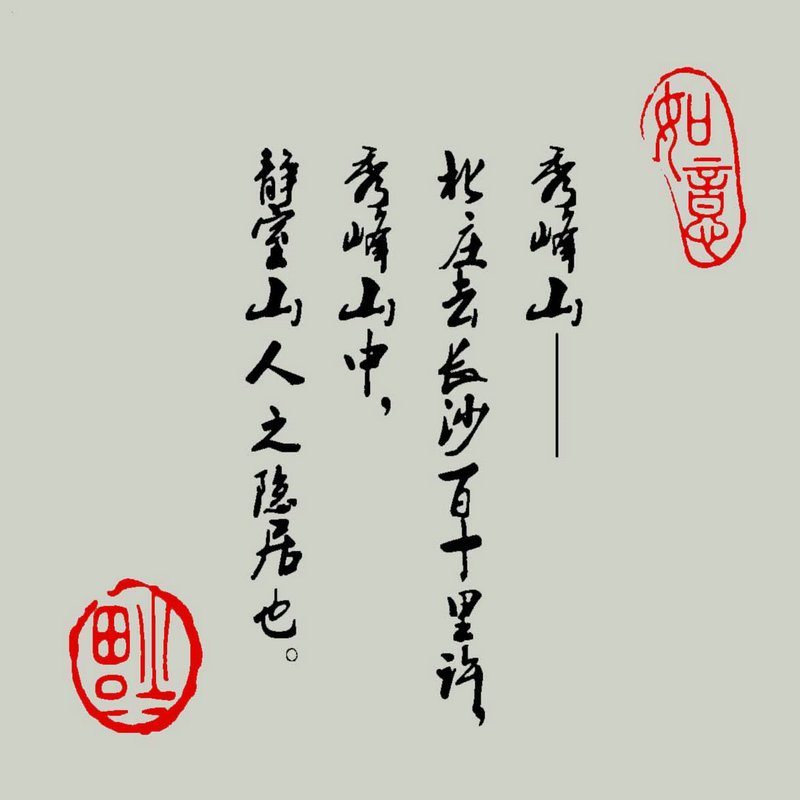 如意
秀峰山——
此庄去长沙百十里许，
秀峰山中，
静室山人之隐居也。